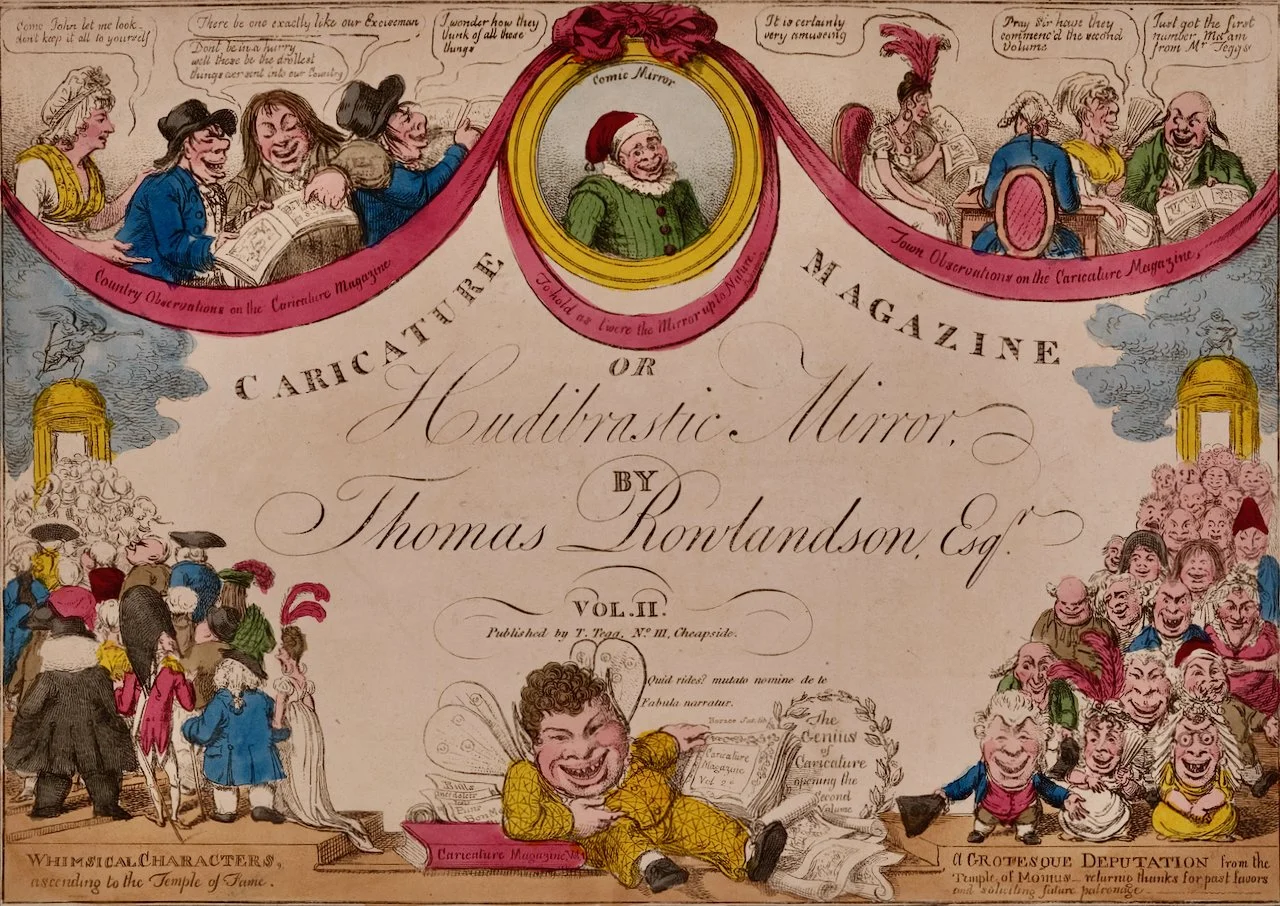 Come John let me look
dont keep it all to yourself
There be one exactly like our Exciseman
Dont be in a hurry
well these be the drollest
things ever sent into our Country
I wonder how they
think of all these
things
Comic Mirror
It is certainly
very amuseing
Pray Sir have they
commenc'd the second
Volume
Just got the first
number Ma'am
from Mr Teggs
Country Observations on the Caricature Magazine
To hold as t'were the Mirror up to Nature
Town Observations on the Caricature Magazine,
CARICATURE MAGAZINE
OR
Hudibrastic Mirror,
BY
Thomas Rowlandson, Esqr.
VOL. II.
Published by T. Tegg, No. 111, Cheapside.
Quid rides? mutato nomine de te
Fabula narratur.
Caricature
Magazine
The
Genius
of
Caricature
opening the
Second
Volume
Caricature Magazine
WHIMSICAL CHARACTERS,
ascending to the Temple of Fame.
A GROTESQUE DEPUTATION from the
Temple of MOMUS – returning thanks for past favors
and soliciting future patronage